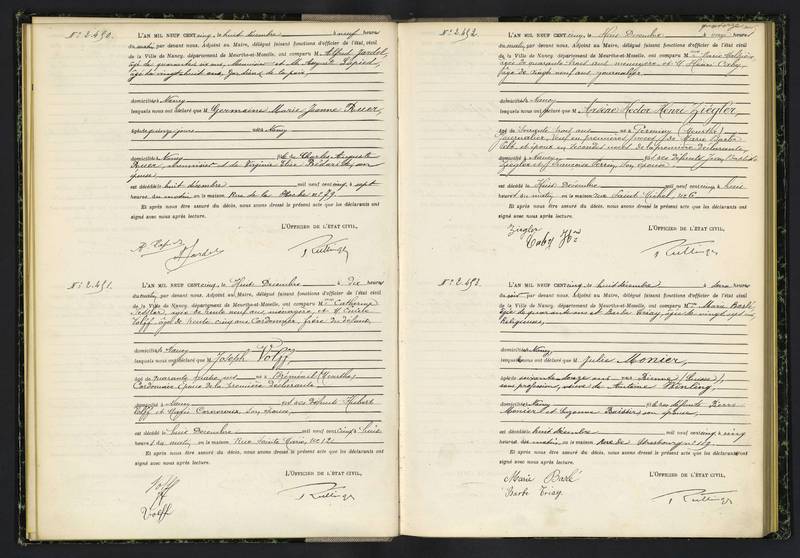 N° 2.490.
L'AN MIL NEUF CENT cinq, le huit décembre à neuf heures
du matin, par devant nous, Adjoint au Maire, délégué faisant fonctions d'officier de l'état civil
de la Ville de Nancy, département de Meurthe-et-Moselle, ont comparu M. Alfred Jardel,
âgé de quarante six ans, et M. August
âgé de vingt huit ans, gardiens de la paix,
domiciliés à Nancy
lesquels nous ont déclaré que Germaine Marie Jeanne Ruer,
âgée de quinze jours née à Nancy
domiciliée à Nancy fille de Charles Auguste
Ruer, et de Virginie
épouse
est décédée le huit décembre mil neuf cent cinq à sept
heures du matin, en la maison, Rue de la n° 79
Et après nous être assuré du décès, nous avons dressé le présent acte que les déclarants ont
signé avec nous après lecture.
L'OFFICIER DE L'ÉTAT CIVIL,
Jardel
N° 2.491.
L'AN MIL NEUF CENT cinq, le Huit Décembre à dix heures
du matin, par devant nous, Adjoint au Maire, délégué faisant fonctions d'officier de l'état civil
de la Ville de Nancy, département de Meurthe-et-Moselle, ont comparu Mme Catherine
âgée de trente neuf ans, ménagère, et M. Emile
Volff, âgé de trente cinq ans, Cordonnier, frère du défunt,
domiciliés à Nancy
lesquels nous ont déclaré que M. Joseph Volff
âgé de quarante quatre ans né à Réméréville (Meurthe)
Cordonnier, époux de la première déclarante
domicilié à Nancy fils des défunts Hubert
Volff et Marie son épouse,
est décédé le huit Décembre mil neuf cent cinq à huit
heures du matin, en la maison Rue Sainte Marie, n° 12
Et après nous être assuré du décès, nous avons dressé le présent acte que les déclarants ont
signé avec nous après lecture.
L'OFFICIER DE L'ÉTAT CIVIL,
Volff
Volff
N° 2.492.
L'AN MIL NEUF CENT cinq, le Huit Décembre à onze heures
du matin, par devant nous, Adjoint au Maire, délégué faisant fonctions d'officier de l'état civil
de la Ville de Nancy, département de Meurthe-et-Moselle, ont comparu Mme Marie
âgée de quarante trois ans ménagère et M. Henri Caby
âgé de vingt neuf ans journalier
domiciliés à Nancy
lesquels nous ont déclaré que M. Arsène Hector Henri Ziégler,
âgé de cinquante trois ans né à (Meurthe)
journalier, veuf en premières noces de Marie Barbe
et époux en secondes noces de la première déclarante,
domicilié à Nancy, fils des défunts Jean Baptiste
Ziégler et Françoise Perrin son épouse.
est décédé le Huit Décembre mil neuf cent cinq à huit
heures du matin en la maison rue Saint Michel, n° 6
Et après nous être assuré du décès, nous avons dressé le présent acte que les déclarants ont
signé avec nous après lecture.
L'OFFICIER DE L'ÉTAT CIVIL,
Ziégler
Caby Hri
N° 2.493.
L'AN MIL NEUF CENT cinq, le huit décembre à heures
du soir, par devant nous, Adjoint au Maire, délégué faisant fonctions d'officier de l'état civil
de la Ville de Nancy, département de Meurthe-et-Moselle, ont comparu Mme Marie Barlé
âgée de quarante ans et Barbe Triay, âgée de vingt sept ans
Religieuses,
domiciliées à Nancy
lesquelles nous ont déclaré que Mme Julie Monier,
âgée de soixante douze ans née à Bienne (Suisse),
sans profession, veuve de Antoine
domiciliée à Nancy fille des défunts Pierre
Monier et Suzanne son épouse,
est décédée le huit décembre mil neuf cent cinq à cinq
heures du matin, en la maison, Rue de Strasbourg n° 159
Et après nous être assuré du décès, nous avons dressé le présent acte que les déclarants ont
signé avec nous après lecture.
L'OFFICIER DE L'ÉTAT CIVIL,
Marie Barlé
Barbe Triay